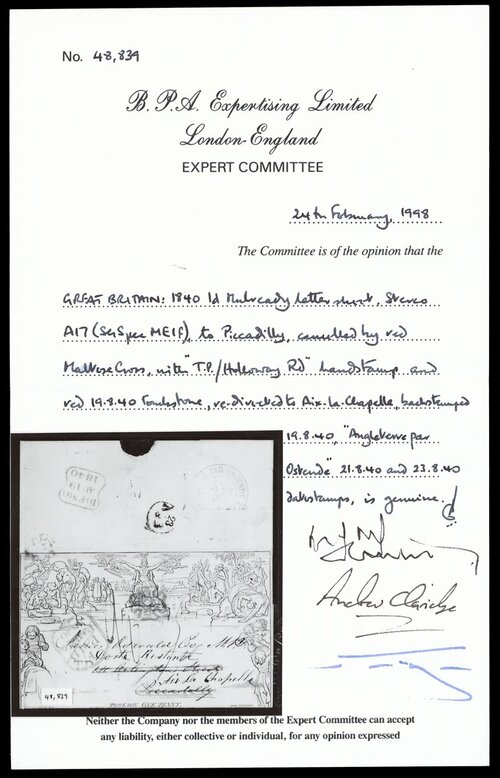 No. 48,839
B. P. A. Expertising Limited
London-England
EXPERT COMMITTEE
24th February, 1998
The Committee is of the opinion that the
GREAT BRITAIN: 1840 1d Mulready lettersheet, Stereo
A17 (SG Spec ME1F), to Piccadilly, cancelled by red
Maltese Cross, with "T.P./Holloway Rd" handstamp and
red 19.8.40 Tombstone, re-directed to Aix-La-Chapelle, backstamped
19.8.40, "Angleterre par
Ostende" 21.8.40 and 23.8.40
datestamps, is genuine.
Andrew Claridge
1840
AU 19
Poste Restante
Aix La Chapelle
Piccadilly
POSTAGE ONE PENNY.
48,839
Neither the Company nor the members of the Expert Committee can accept
any liability, either collective or individual, for any opinion expressed